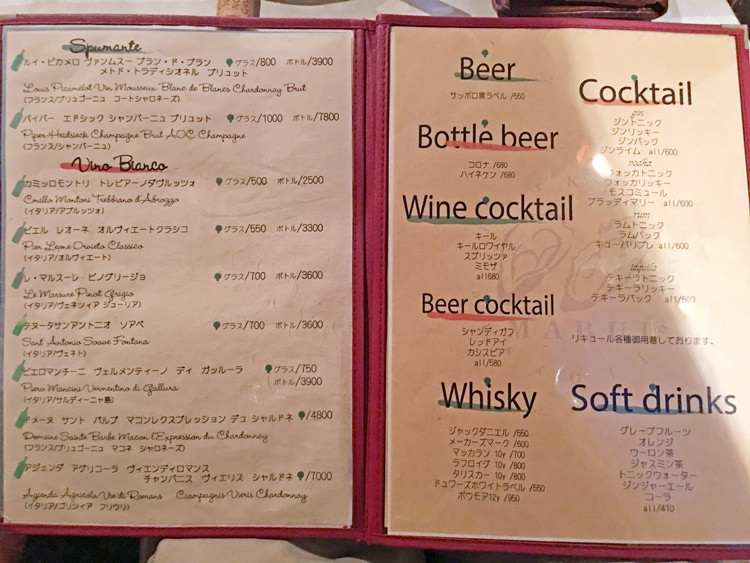 Spumante
ルイ・ピカメロ ヴァンムスー ブラン・ド・ブラン グラス/800 ボトル/3900
メトド・トラディシオネル ブリュット
Louis Picamelot Vin Mousseux Blanc de Blancs Chardonnay Brut
(フランス/ブリゴーニュ コートシャロネーズ)
パイパー エドシック シャンパーニュ ブリュット グラス/1000 ボトル/7800
Piper-Heidsieck Champagne Brut AOC Champagne
(フランス/シャンパーニュ)
Vino Bianco
カミッロモントリ トレビアーノダヴルッツォ グラス/500 ボトル/2500
Cmillo Montori Trebbiano d'Abrozzo
(イタリア/アブルッツオ)
ピエル レオーネ オルヴィエートクラシコ グラス/550 ボトル/3300
Pier Leone Orvieto Classico
(イタリア/オルヴィエート)
レ・マルスーレ ピノグリージョ グラス/700 ボトル/3600
Le Marsure Pinot Grigio
(イタリア/ヴェネツィア ジューリア)
テヌータサンアントニオ ソアベ グラス/700 ボトル/3600
Sant Antonio Soave Fontana
(イタリア/ヴェネト)
ピエロマンチーニ ヴェルメンティーノ ディ ガッルーラ グラス/750
ボトル/3900
Piero Mancini Vermentino di Gallura
(イタリア/サルディーニャ島)
ドメーヌ サント バルブ マコンレクスプレッション デュ シャルドネ /4800
Domaine Sainte Barbe Macon l'Expression du Chardonnay
(フランス/ブリゴーニュ マコネ シャロネーズ)
アジェンダ アグリコーラ ヴィエンディロマンス
チャンパニス ヴィエリス シャルドネ /7000
Agenda Agricola Vie di Romans Ciampagnis Vieris Chardonnay
(イタリア/ゴリンィア フリウリ)
Beer
サッポロ黒ラベル /550
Bottle beer
コロナ /680
ハイネケン /680
Wine cocktail
キール
キールロワイヤル
スプリッツァ
ミモザ
all680
Beer cocktail
シャンディガフ
レッドアイ
カシスビア
all/580
Whisky
ジャックダニエル /550
メーカーズマーク /600
マッカラン 10y /700
ラフロイグ 10y /800
タリスカー 10y /800
デュワーズホワイトラベル /550
ボウモア12y /950
Cocktail
gin
ジントニック
ジンリッキー
ジンバック
ジンライム all/600
vodka
ウォッカトニック
ウォッカリッキー
モスコミュール
ブラッディマリー all/600
rum
ラムトニック
ラムバック
キューバリブレ all/600
tequila
テキーラトニック
テキーラリッキー
テキーラバック all/600
リキュール各種御用意しております。
Soft drinks
グレープフルーツ
オレンジ
ウーロン茶
ジャスミン茶
トニックウォーター
ジンジャーエール
コーラ
all/410